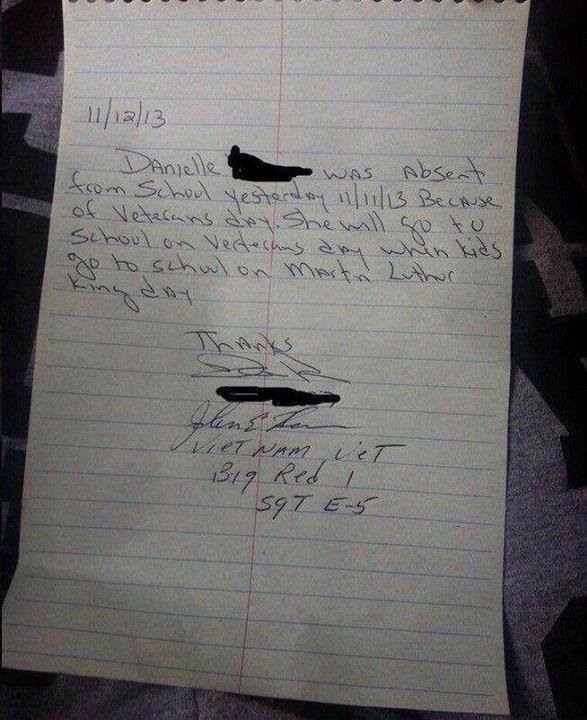 11/12/13
Danielle was Absent
from School yesterday 11/11/13 Because
of Veterans day. She will go to
School on Vederans day when kids
go to school on Martn Luthur
king day
Thanks
VIET NAM VET
Big Red 1
SGT E-5